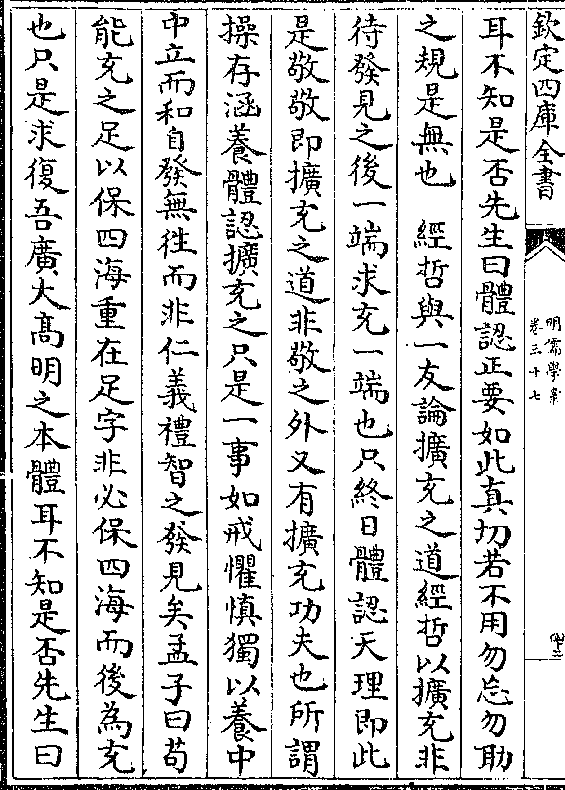 欽定四庫全書
明儒學案
卷三十七
耳不知是否先生曰體認正要如此真切若不用勿忘勿助
之規是無也　經哲與一友論擴充之道經哲以擴充非
待發見之後一端求充一端也只終日體認天理即此
是敬敬即擴充之道非敬之外又有擴充功夫也所謂
操存涵養體認擴充之只是一事如戒懼慎獨以養中
中立而和自發無徃而非仁義禮智之發見矣孟子曰苟
能充之足以保四海重在足字非必保四海而後為充
也只是求復吾廣大髙明之本體耳不知是否先生曰